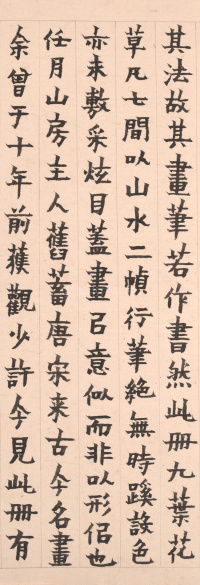 其法故其畫筆若作書然此冊九葉花
草凡七間以山水二幀行筆絕無時蹊設色
亦未敷采炫目蓋畫已意似而非以形侣也
任月山房主人舊蓄唐宋来古今名畫
余曾于十年前獲觀少許今見此冊有